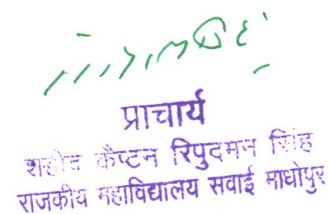 प्राचार्य
शहीद कैप्टन रिपुदमन सिंह
राजकीय महाविद्यालय सवाई माधोपुर